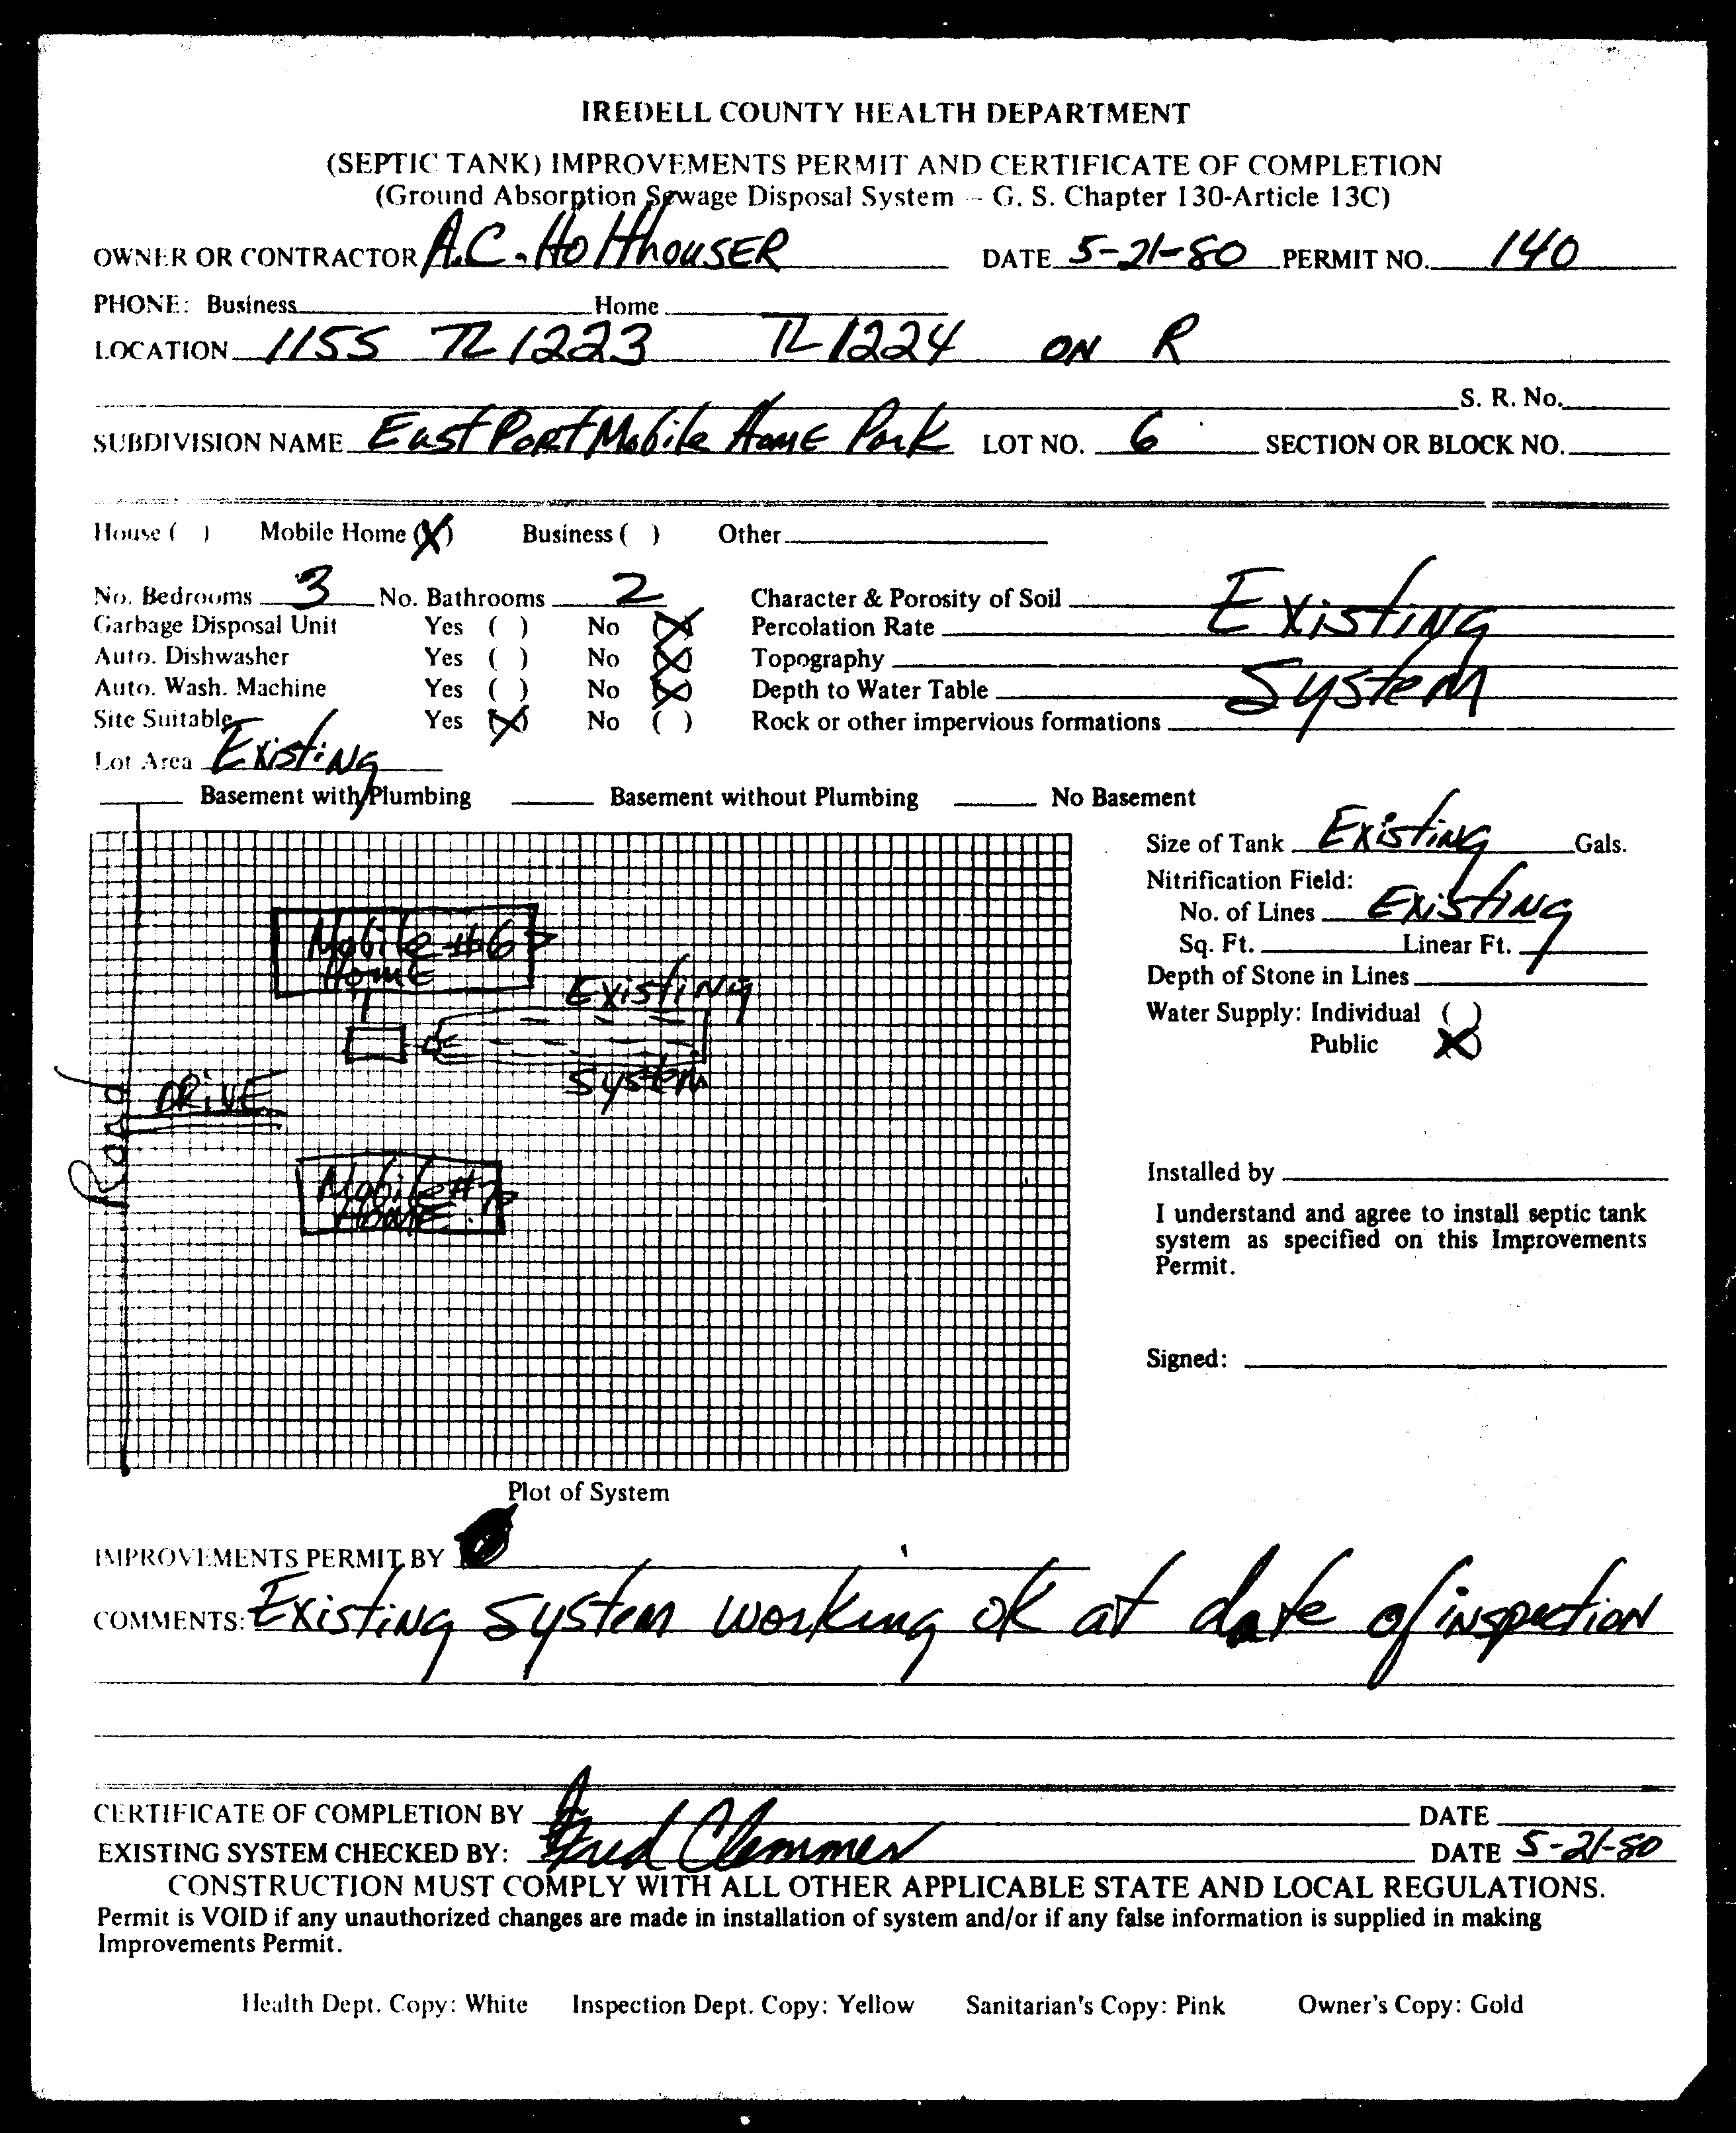 IREDELL COUNTY HEALTH DEPARTMENT
(SEPTIC TANK) IMPROVEMENTS PERMIT AND CERTIFICATE OF COMPLETION
(Ground Absorption Sewage Disposal System -- G. S. Chapter 130-Article 13C)
OWNER OR CONTRACTOR A.C. HolthousER DATE 5-21-80 PERMIT NO. 140
PHONE: Business Home
LOCATION 1155 TL 1223 TL 1224 ON R
S. R. No.
SUBDIVISION NAME East Port Mobile Home Park LOT NO. 6 SECTION OR BLOCK NO.
House ( ) Mobile Home (X) Business ( ) Other
No. Bedrooms 3 No. Bathrooms 2 Character & Porosity of Soil Existing
Garbage Disposal Unit Yes ( ) No (X) Percolation Rate
Auto. Dishwasher Yes ( ) No (X) Topography System
Auto. Wash. Machine Yes ( ) No (X) Depth to Water Table
Site Suitable Yes (X) No ( ) Rock or other impervious formations
Lot Area Existing
Basement with Plumbing Basement without Plumbing No Basement
Size of Tank Existing Gals.
Nitrification Field:
No. of Lines Existing
Sq. Ft. Linear Ft.
Depth of Stone in Lines
Water Supply: Individual ( )
Public (X)
Mobile #6
Home
Existing
System
Road
DRIVE
Mobile #7
HOME
Installed by
I understand and agree to install septic tank
system as specified on this Improvements
Permit.
Signed:
Plot of System
IMPROVEMENTS PERMIT BY
COMMENTS: Existing System working ok at date of inspection
CERTIFICATE OF COMPLETION BY DATE
EXISTING SYSTEM CHECKED BY: Fred Clemmer DATE 5-21-80
CONSTRUCTION MUST COMPLY WITH ALL OTHER APPLICABLE STATE AND LOCAL REGULATIONS.
Permit is VOID if any unauthorized changes are made in installation of system and/or if any false information is supplied in making
Improvements Permit.
Health Dept. Copy: White Inspection Dept. Copy: Yellow Sanitarian's Copy: Pink Owner's Copy: Gold